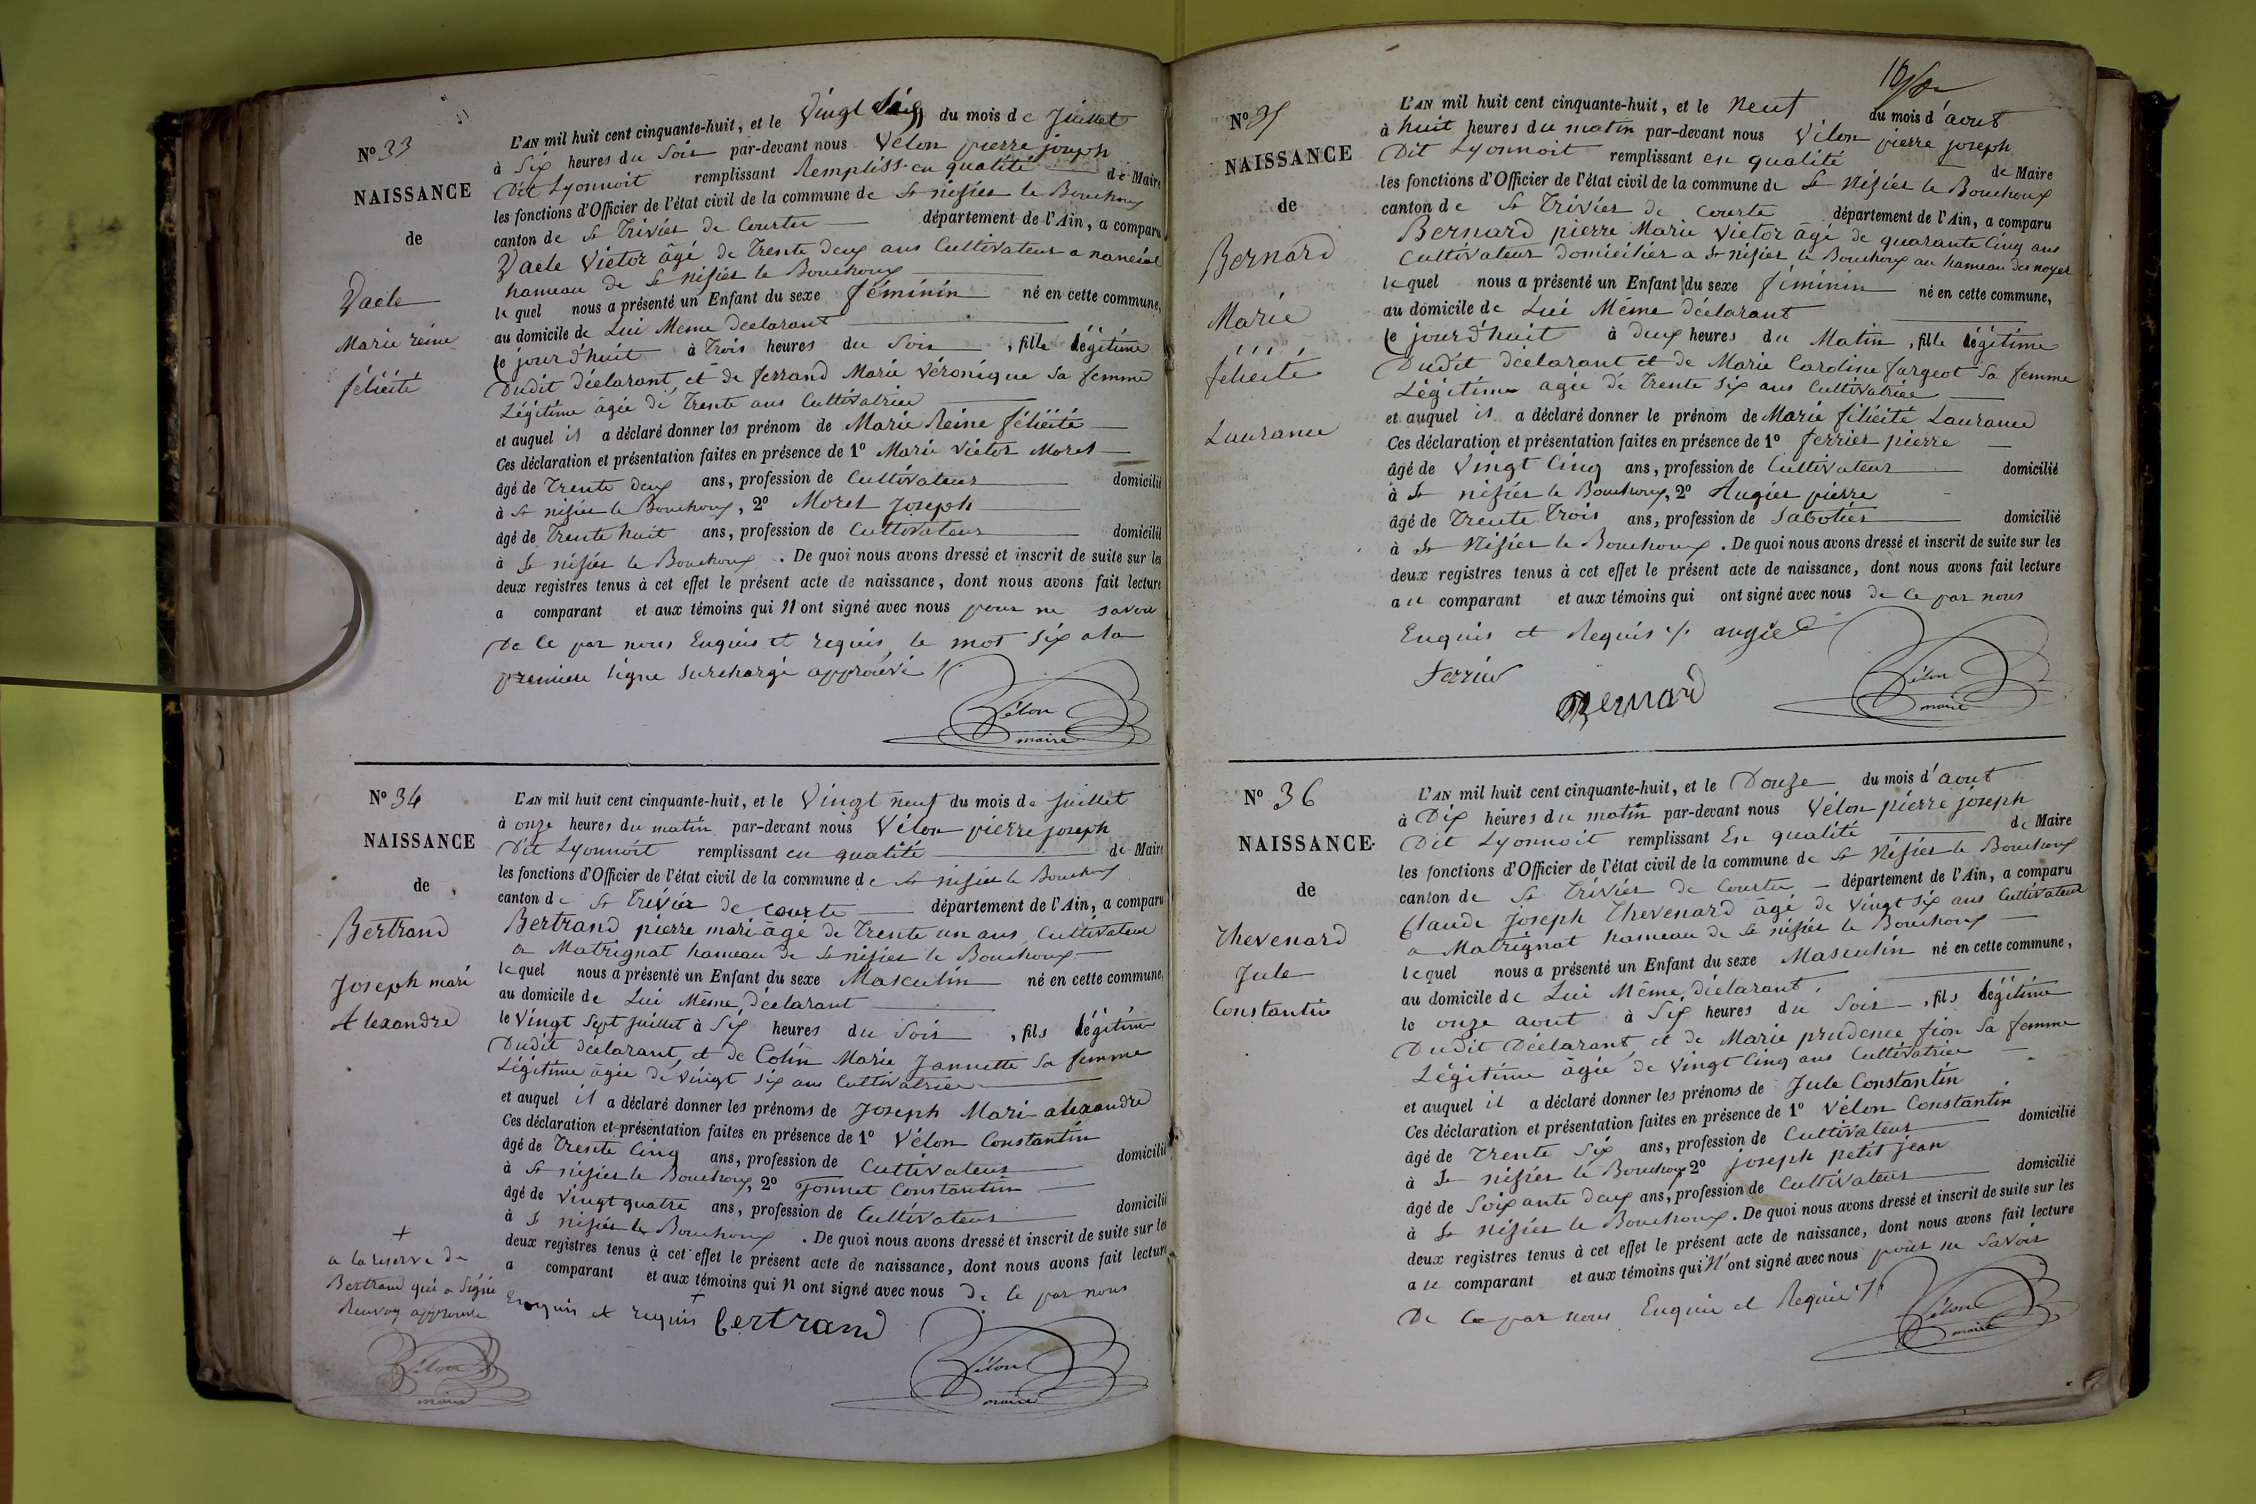 N° 33
NAISSANCE
de
Vacle
Marie reine
félicité
L'AN mil huit cent cinquante-huit, et le Vingt Six du mois de Juillet
à Six heures du Soir par-devant nous Vélon pierre joseph
Dit Lyonnoit remplissant Rempliss. en qualité de Maire
les fonctions d'Officier de l'état civil de la commune de St nisier le Bouchoux
canton de St Trivier de Courtes département de l'Ain, a comparu
Vacle Victor âgé de Trente deux ans Cultivateur a
hameau de St nisier le Bouchoux
lequel nous a présenté un Enfant du sexe féminin né en cette commune,
au domicile de Lui Meme déclarant
le jourd'huit à Trois heures du Soir, fille légitime
Dudit déclarant, et de ferrand Marie Véronique Sa femme
Légitime âgée de Trente ans Cultivatrice
et auquel il a déclaré donner les prénom de Marie Reine félicité
Ces déclaration et présentation faites en présence de 1° Marie Victor Morel
âgé de Trente deux ans, profession de Cultivateur domicilié
à St nisier le Bouchoux, 2° Morel Joseph
âgé de Trente huit ans, profession de Cultivateur domicilié
à St nisier le Bouchoux. De quoi nous avons dressé et inscrit de suite sur les
deux registres tenus à cet effet le présent acte de naissance, dont nous avons fait lecture
a comparant et aux témoins qui N ont signé avec nous pour ne savoir
De Ce par nous Enquis et requis, le mot Six a la
premiere ligne Surchargé approuvé
Vélon
maire
N° 34
NAISSANCE
de
Bertrand
Joseph mari
Alexandre
L'AN mil huit cent cinquante-huit, et le Vingt neuf du mois de Juillet
à onze heures du matin par-devant nous Vélon pierre joseph
Dit Lyonnoit remplissant en qualité de Maire
les fonctions d'Officier de l'état civil de la commune de St nisier le Bouchoux
canton de St Trivier de Courte département de l'Ain, a comparu
Bertrand pierre mari âgé de Trente un ans Cultivateur
a Matrignat hameau de St nisier le Bouchoux
lequel nous a présenté un Enfant du sexe Masculin né en cette commune,
au domicile de Lui Même déclarant
le Vingt Sept Juillet à Six heures du Soir, fils légitime
Dudit déclarant, et de Colin Marie Jannette Sa femme
Légitime agée de Vingt Six ans Cultivatrice
et auquel il a déclaré donner les prénoms de Joseph Mari alexandre
Ces déclaration et présentation faites en présence de 1° Vélon Constantin
âgé de Trente Cinq ans, profession de Cultivateur domicilié
à St nisier le Bouchoux, 2° Jonnet Constantin
âgé de Vingt quatre ans, profession de Cultivateur domicilié
à St nisier le Bouchoux. De quoi nous avons dressé et inscrit de suite sur les
deux registres tenus à cet effet le présent acte de naissance, dont nous avons fait lecture
a comparant et aux témoins qui N ont signé avec nous de Ce par nous
Enquis et requis + Bertrand
+
a la reserve de
Bertrand qui a Signé
Renvoy approuvé
Vélon
maire
Vélon
maire
N° 35
NAISSANCE
de
Bernard
Marie
félicité
Laurance
L'AN mil huit cent cinquante-huit, et le Neuf du mois d'aout
à huit heures du matin par-devant nous Vélon pierre joseph
Dit Lyonnoit remplissant en qualité de Maire
les fonctions d'Officier de l'état civil de la commune de St Nisier le Bouchoux
canton de St Trivier de Courte département de l'Ain, a comparu
Bernard pierre Marie Victor âgé de quarante Cinq ans
Cultivateur domicilier a St nisier le Bouchoux au hameau des noyer
lequel nous a présenté un Enfant du sexe féminin né en cette commune,
au domicile de Lui Même déclarant
le jourd'huit à deux heures du Matin, fille légitime
Dudit déclarant et de Marie Caroline fargeot Sa femme
Légitime agée de Trente Six ans Cultivatrice
et auquel il a déclaré donner le prénom de Marie félicité Laurance
Ces déclaration et présentation faites en présence de 1° ferrier pierre
âgé de Vingt Cinq ans, profession de Cultivateur domicilié
à St nisier le Bouchoux, 2° Augier pierre
âgé de Trente Trois ans, profession de Sabotier domicilié
à St Nisier le Bouchoux. De quoi nous avons dressé et inscrit de suite sur les
deux registres tenus à cet effet le présent acte de naissance, dont nous avons fait lecture
au comparant et aux témoins qui ont signé avec nous de Ce par nous
Enquis et Requis augié
Ferrier
Bernard
Vélon
maire
N° 36
NAISSANCE
de
Thevenard
Jule
Constantin
L'AN mil huit cent cinquante-huit, et le Douze du mois d'aout
à Dix heures du matin par-devant nous Vélon pierre joseph
Dit Lyonnoit remplissant En qualité de Maire
les fonctions d'Officier de l'état civil de la commune de St Nisier le Bouchoux
canton de St Trivier de Courtes département de l'Ain, a comparu
Claude Joseph Thevenard âgé de Vingt Six ans Cultivateur
a Matrignat hameau de St nisier le Bouchoux
lequel nous a présenté un Enfant du sexe Masculin né en cette commune,
au domicile de Lui Même déclarant
le onze aout à Six heures du Soir, fils légitime
Dudit Déclarant, et de Marie prudence fion Sa femme
Légitime âgée de Vingt Cinq ans Cultivatrice
et auquel il a déclaré donner les prénoms de Jule Constantin
Ces déclaration et présentation faites en présence de 1° Vélon Constantin
âgé de Trente Six ans, profession de Cultivateur domicilié
à St nisier le Bouchoux 2° joseph petit jean
âgé de Soixante deux ans, profession de Cultivateur domicilié
à St Nisier le Bouchoux. De quoi nous avons dressé et inscrit de suite sur les
deux registres tenus à cet effet le présent acte de naissance, dont nous avons fait lecture
au comparant et aux témoins qui N'ont signé avec nous pour ne Savoir
De Ce par nous Enquis et Requis
Vélon
maire